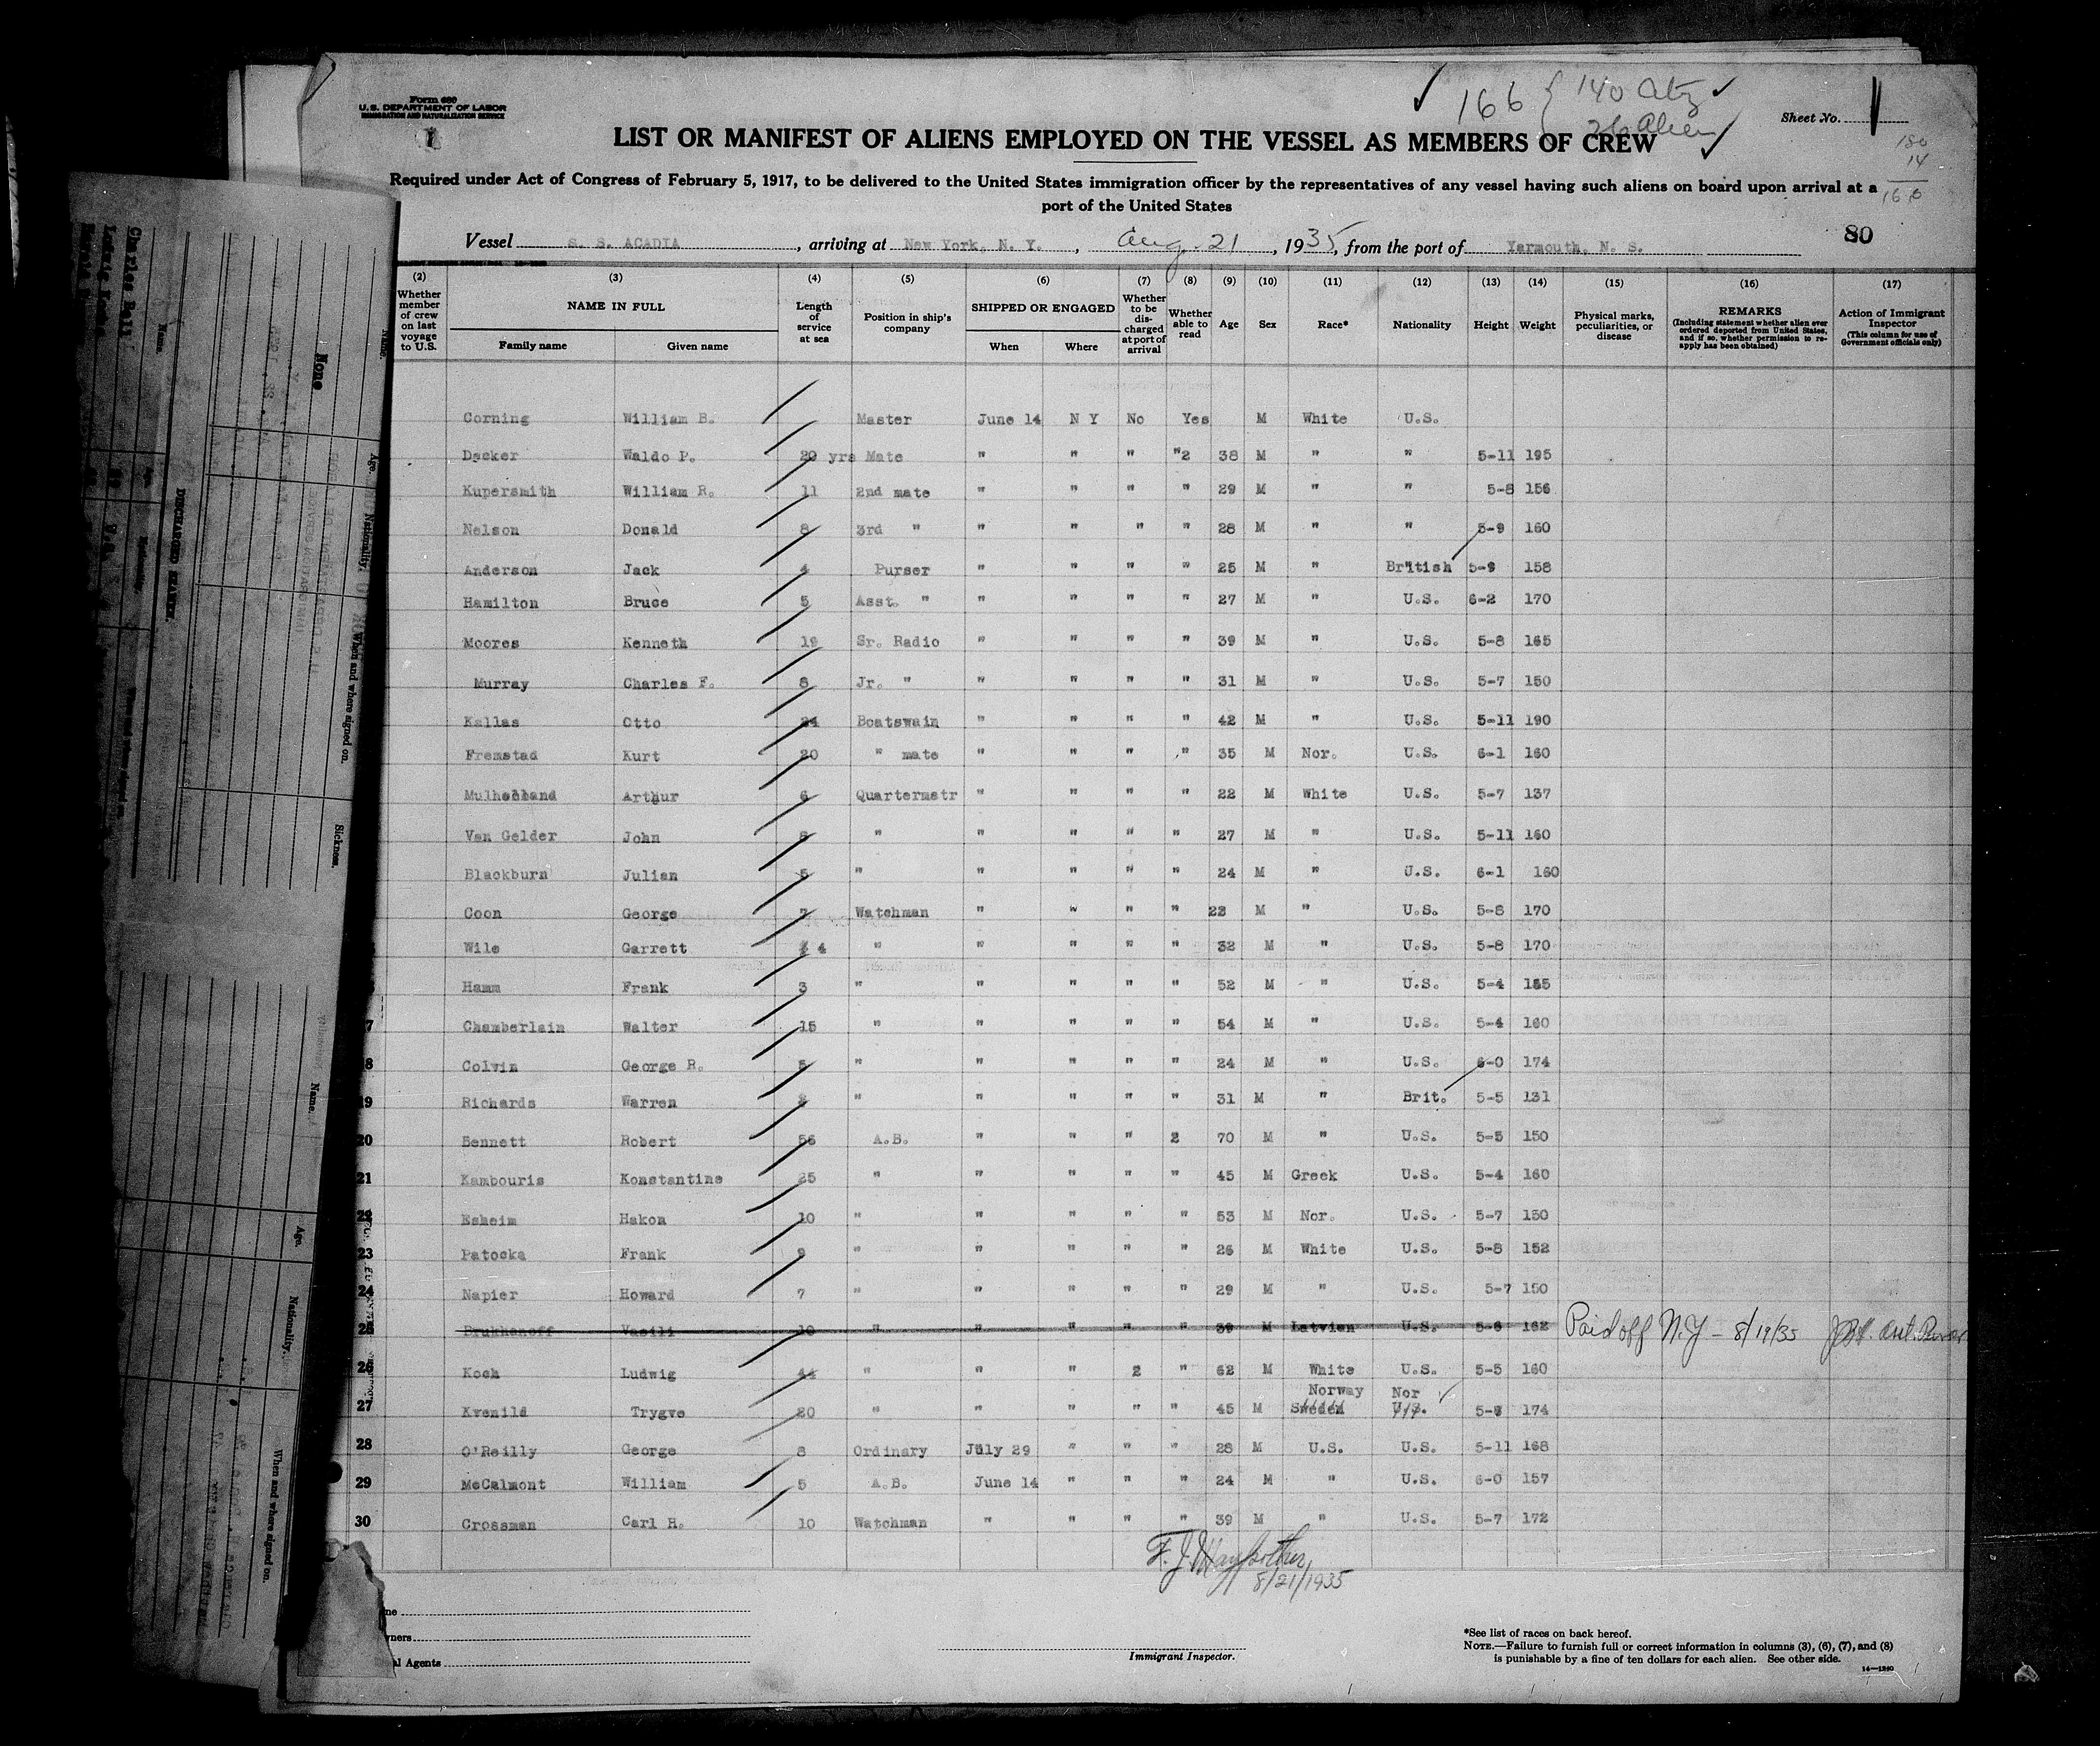 Form 680
U.S. DEPARTMENT OF LABOR
IMMIGRATION AND NATURALIZATION SERVICE
166 { 140 Ctz
26 Alien
Sheet No. 1
LIST OR MANIFEST OF ALIENS EMPLOYED ON THE VESSEL AS MEMBERS OF CREW
180
14
166
Required under Act of Congress of February 5, 1917, to be delivered to the United States immigration officer by the representatives of any vessel having such aliens on board upon arrival at a
port of the United States
80
Vessel S. S. ACADIA, arriving at New York, N. Y., Aug. 21, 1935, from the port of Yarmouth, N. S.
(2) (3) (4) (5) (6) (7) (8) (9) (10) (11) (12) (13) (14) (15) (16) (17)
Whether member of crew on last voyage to U.S. NAME IN FULL Family name Given name Length of service at sea Position in ship's company SHIPPED OR ENGAGED When Where Whether to be discharged at port of arrival Whether able to read Age Sex Race* Nationality Height Weight Physical marks, peculiarities, or disease REMARKS (Including statement whether alien ever ordered deported from United States, and if so, whether permission to reapply has been obtained) Action of Immigrant Inspector (This column for use of Government officials only)
Corning William B. Master June 14 N Y No Yes M White U.S.
Decker Waldo P. 20 yrs Mate " " " "2 38 M " " 5-11 195
Kupersmith William R. 11 2nd mate " " " " 29 M " " 5-8 156
Nelson Donald 8 3rd " " " " " 28 M " " 5-9 160
Anderson Jack 4 Purser " " " " 25 M " British 5-9 158
Hamilton Bruce 5 Asst. " " " " " 27 M " U.S. 6-2 170
Moores Kenneth 19 Sr. Radio " " " " 39 M " U.S. 5-8 165
Murray Charles F. 8 Jr. " " " " " 31 M " U.S. 5-7 150
Kallas Otto 24 Boatswain " " " " 42 M " U.S. 5-11 190
Fremstad Kurt 20 " mate " " " " 35 M Nor. U.S. 6-1 160
Mulholland Arthur 6 Quartermstr " " " " 22 M White U.S. 5-7 137
Van Gelder John 8 " " " " " 27 M " U.S. 5-11 160
Blackburn Julian 5 " " " " " 24 M " U.S. 6-1 160
Coon George 7 Watchman " " " " 23 M " U.S. 5-8 170
Wile Garrett 4 " " " " " 32 M " U.S. 5-8 170
Hamm Frank 3 " " " " " 52 M " U.S. 5-4 185
7 Chamberlain Walter 15 " " " " " 54 M " U.S. 5-4 160
8 Colvin George R. 5 " " " " " 24 M " U.S. 6-0 174
19 Richards Warren " " " " " 31 M " Brit. 5-5 131
20 Bennett Robert 56 A.B. " " " 2 70 M " U.S. 5-5 150
21 Kambouris Konstantine 25 " " " " " 45 M Greek U.S. 5-4 160
22 Esheim Hakon 10 " " " " " 53 M Nor. U.S. 5-7 150
23 Patocka Frank 9 " " " " " 26 M White U.S. 5-8 152
24 Napier Howard 7 " " " " " 29 M " U.S. 5-7 150
25 Brukhanoff Vasili 10 " " " " " 39 M Latvian U.S. 5-6 162 Paid off N.Y - 8/19/35 Ast. Purser
26 Koch Ludwig 44 " " " 2 " 62 M White U.S. 5-5 160
Norway Nor
27 Kvenild Trygve 20 " " " " " 45 M Sweden U.S. 5-8 174
28 O'Reilly George 8 Ordinary July 29 " " " 28 M U.S. U.S. 5-11 168
29 McCalmont William 5 A.B. June 14 " " " 24 M " U.S. 6-0 157
30 Crossman Carl H. 10 Watchman " " " " 39 M " U.S. 5-7 172
8/21/1935
Immigrant Inspector.
*See list of races on back hereof.
NOTE.—Failure to furnish full or correct information in columns (3), (6), (7), and (8)
is punishable by a fine of ten dollars for each alien. See other side.
14—1240
al Agents
None
DISCHARGED
Charles Ball
Name.
Age.
Nationality.
When and where signed on.
Sickness.